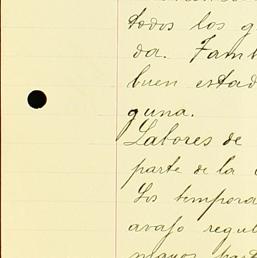 todos los g
da. Tamb
buen estad
guna.
Labores de
parte de la
Los tempora
avajo regul
mayor part